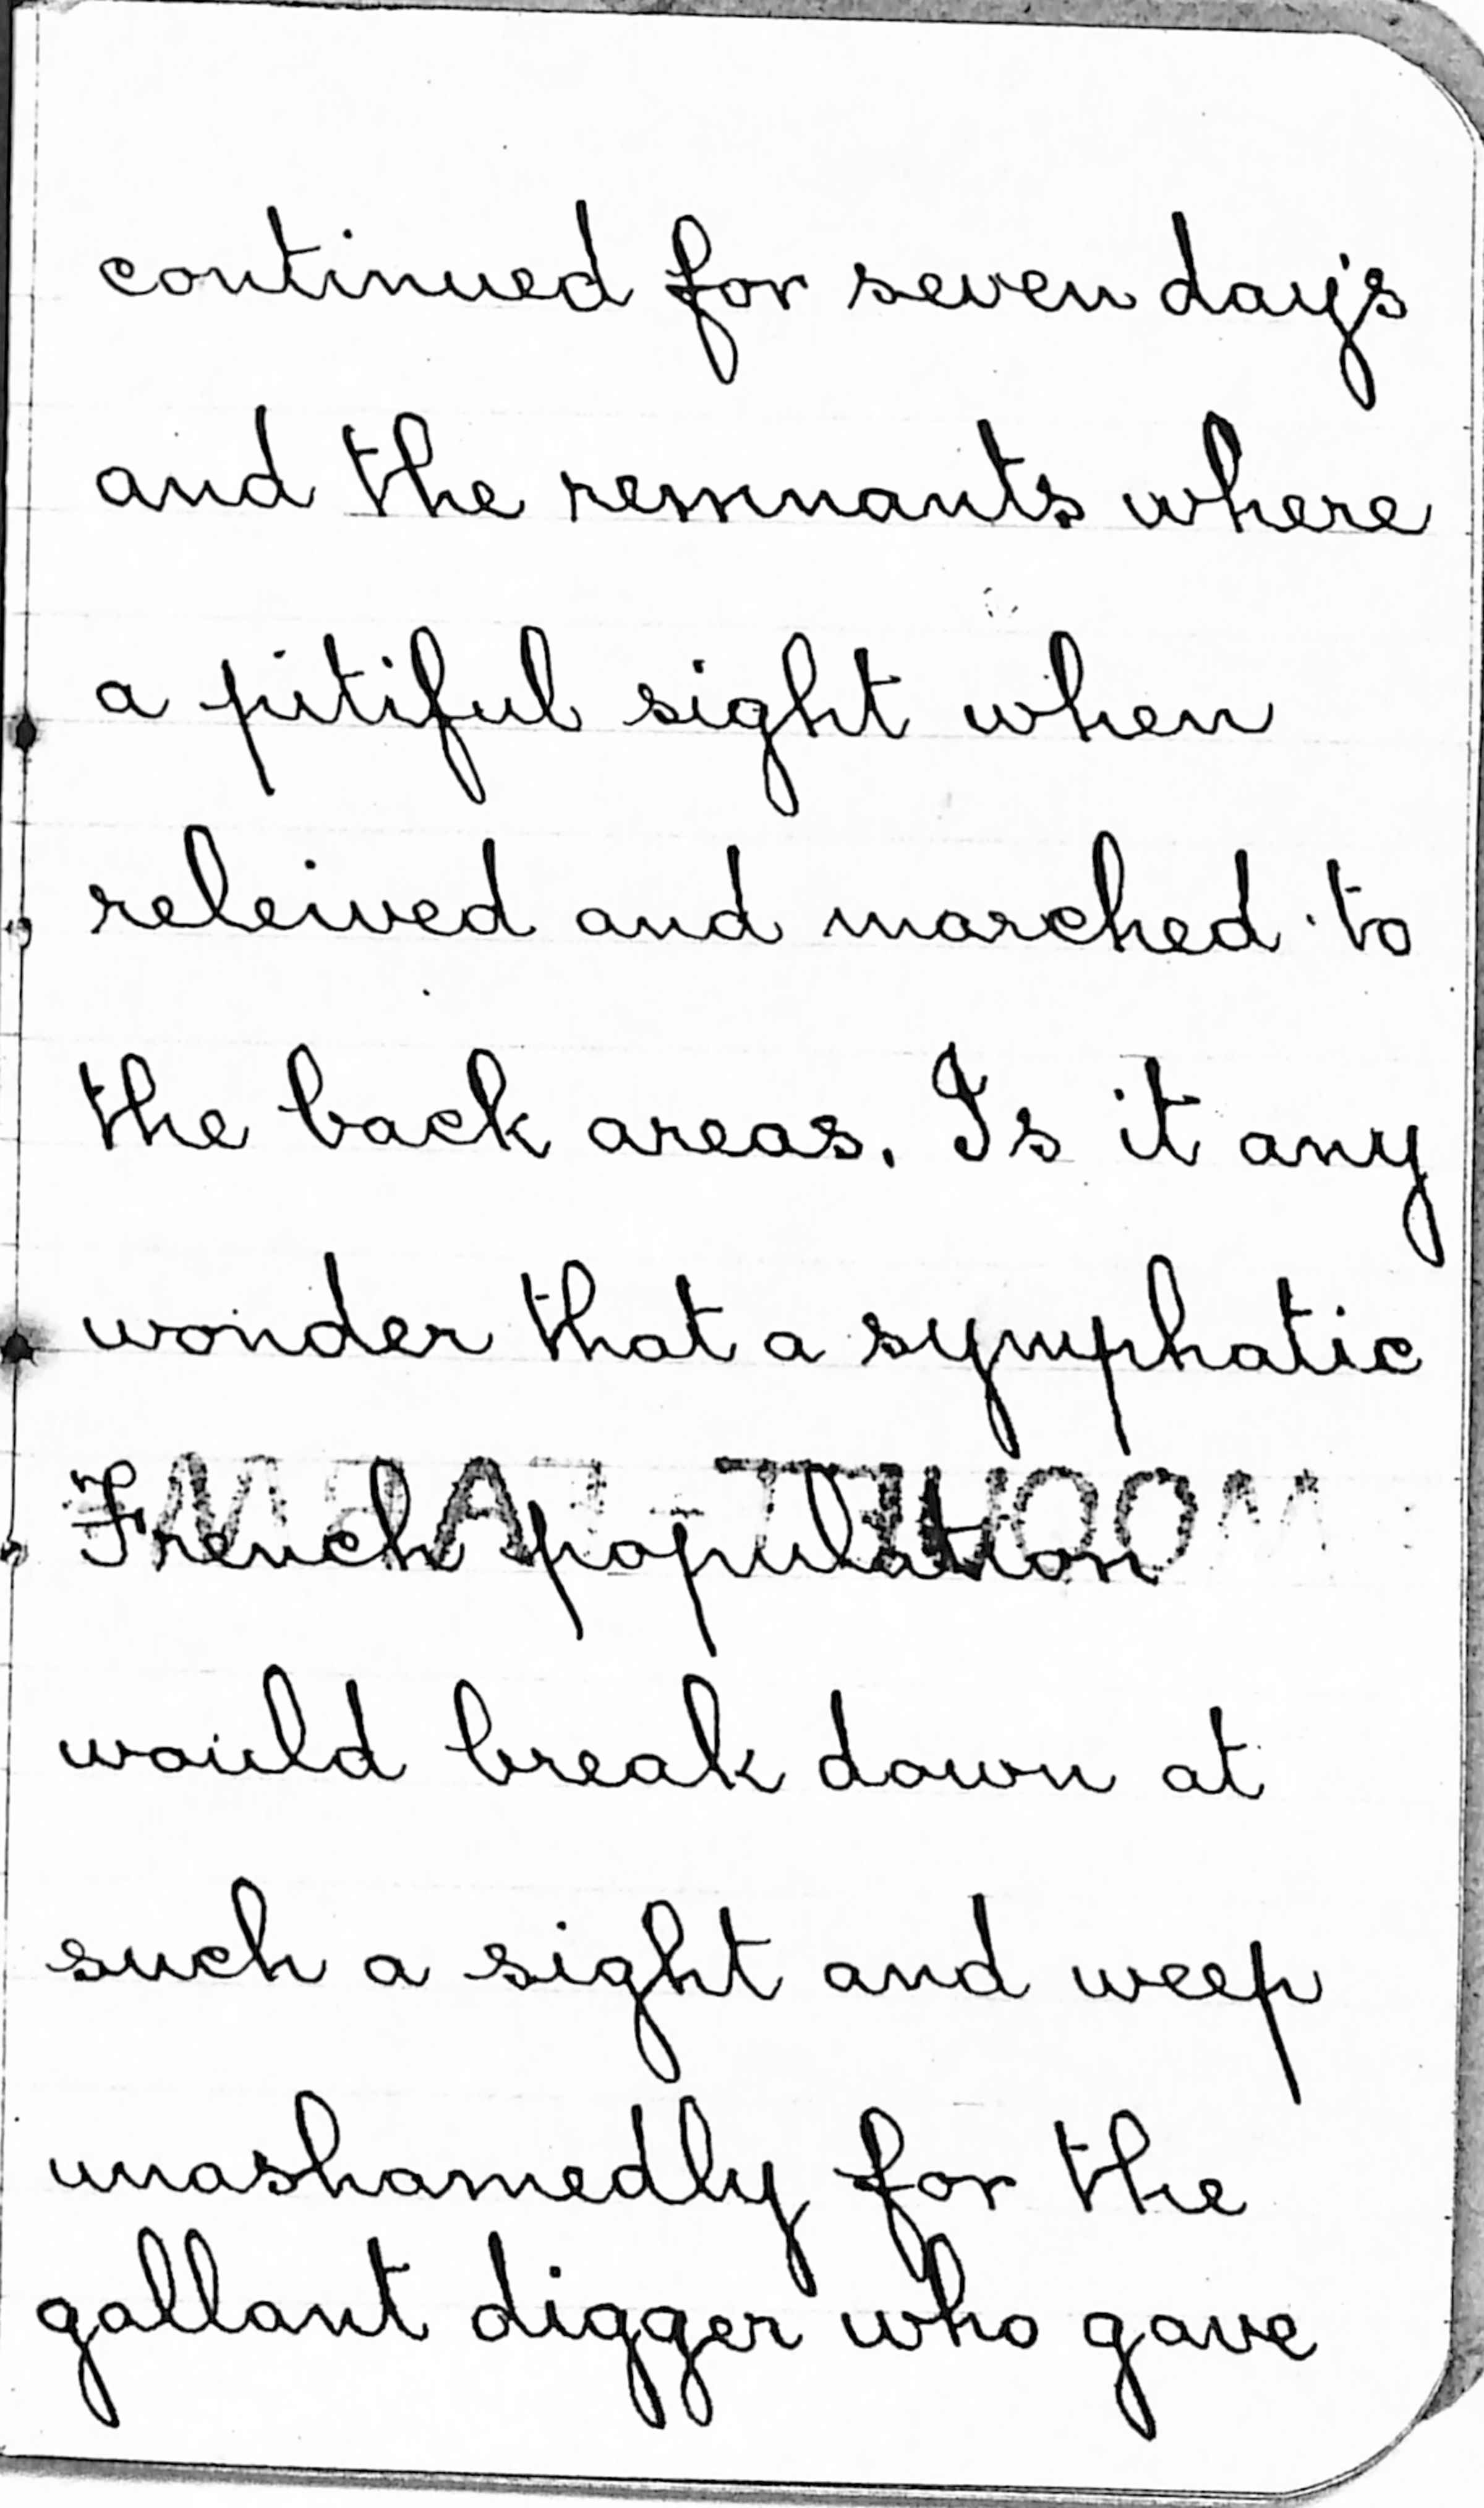 continued for seven day's
and the remnants where
a pitiful sight when
releived and marched to
the back areas. Is it any
wonder that a symphatic
French population
would break down at
such a sight and weep
unashamedly for the
gallant digger who gave